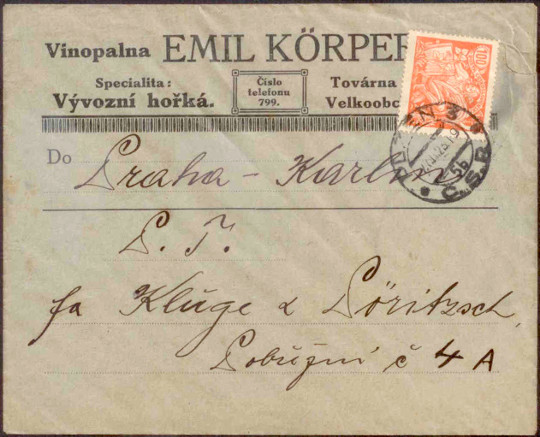 Vinopalna EMIL KÖRPER
Specialita:
Vývozní hořká.
Číslo
telefonu
799.
Továrna
Velkoobc
100
PLZEŇ 3
5b
Č.S.R.
Do Praha - Karlín
P. T.
fa Kluge & Pöritzsch,
Pobřežní č 4 A